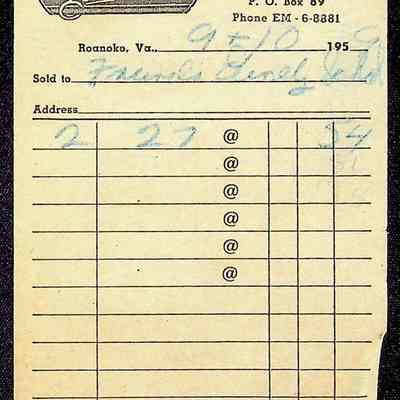 P. O. Box 89
Phone EM - 6-8881
Roanoke, Va., 9-10 1959
Sold to
Address
2 27 @ 54
@
@
@
@
@